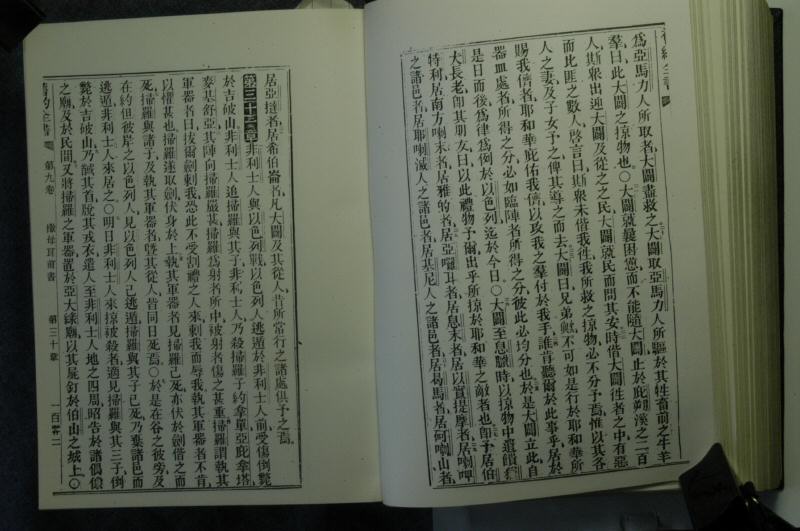 舊約全書
爲亞馬力人所取者大闢盡救之大闢取亞馬力人所驅於其牲畜前之牛羊
羣曰此大闢之掠物也○大闢就曩困憊而不能隨大闢止於庇溪之二百
人斯衆出迎大闢及從之之民大闢就民而問其安時偕大闢往者之中有惡
而比匪之數人啓言曰斯衆未偕我往我所救之掠物必不分予焉惟以其各
人之妻及子女予之俾其導之而去大闢曰兄弟歟不可如是行於耶和華所
賜我儕者耶和華庇佑我儕以攻我之羣付於我手誰肯聽爾於此事乎居於
器皿處者所得之分必如臨陣者所得之分彼此必均分也於是大闢立此自
是日而後爲律爲例於以色列迄於今日○大闢至息時以掠物中遺饋
大長老卽其朋友曰以此禮物予爾出乎所掠於耶和華之敵者也卽予居伯
特利居南方喇末者居雅的者居亞囉耳者居息末者居以實提摩者居喇
之諸邑者居耶喇滅人之諸邑者居基尼人之諸邑者居曷馬者居喇山者
居亞撻者居希伯崙者凡大闢及其從人昔所常行之諸處俱予之焉
第三十一章非利士人與以色列戰以色列人逃遁於非利士人前受傷倒斃
於吉破山非利士人追掃羅與其子非利士人乃殺掃羅子約拿單亞庇拿塔
麥基舒亞其陣向掃羅嚴甚掃羅爲射者所中被射者傷之甚重掃羅謂執其
軍器者曰拔爾劍刺我恐此不受割禮之人來刺我而辱我執其軍器者不肯
以懼甚也掃羅遂取劍伏身於上執其軍器者見掃羅已死亦伏於劍偕之而
死掃羅與諸子及執其軍器者暨其從人皆同日死焉○於是在谷之彼旁及
在約但彼岸之以色列人見以色列人已逃遁掃羅與其子已死乃棄諸邑而
逃遁非利士人來居之○明日非利士人來掠被殺者適見掃羅與其三子倒
斃於吉破山乃馘其首脫其戎衣遣人至非利士人地之四周昭告於諸偶像
之廟及於民間又將掃羅之軍器置於亞大綠廟以其屍釘於伯山之城上○
舊約全書 第九卷 撒母耳前書 第三十章 一百零二